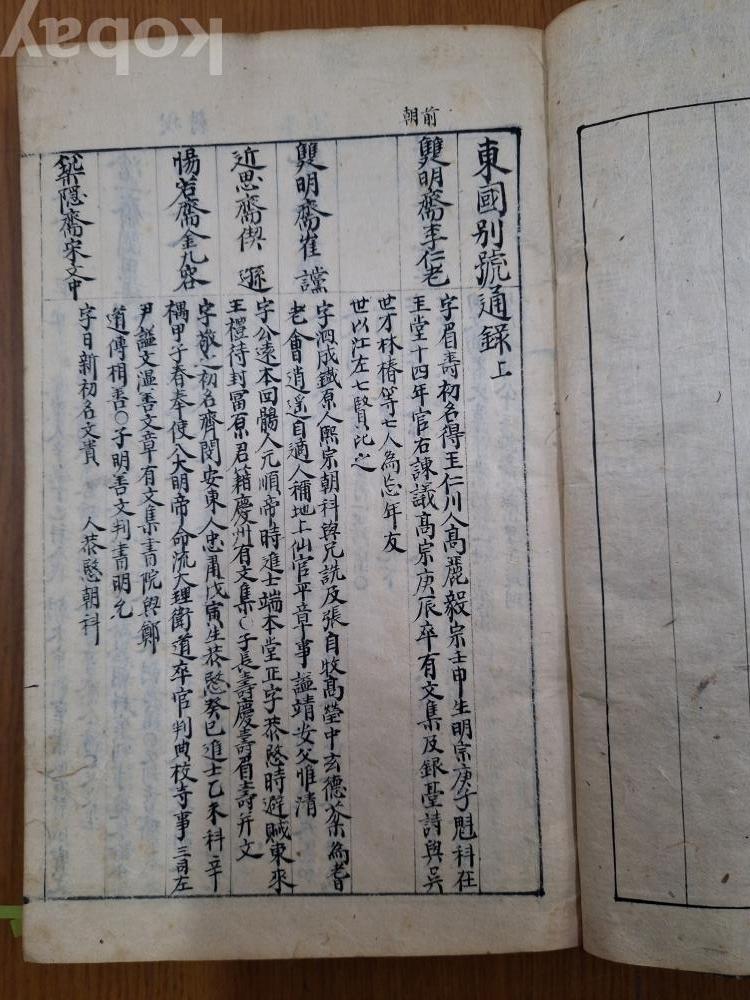 kobay
前朝
東國別號通錄上
雙明齋李仁老
字眉壽初名得玉仁川人高麗毅宗壬申生明宗庚子魁科在
玉堂十四年官右諫議高宗庚辰卒有文集及銀臺詩與吳
世才林椿等七人為忘年友
世以江左七賢比之
雙明齋崔讜
字泗成鐵原人熙宗朝科與兄詵及張自牧高瑩中玄德秀為耆
老會逍遙自適人稱地上仙官平章事謚靖安父惟清
近思齋偰遜
字公遠本回鶻人元順帝時進士端本堂正字恭愍時避賊東來
王禮待封富原君籍慶州有文集○子長壽慶壽眉壽并文
惕若齋金九容
字敬之初名齊閔安東人忠肅戊寅生恭愍癸巳進士乙未科辛
禑甲子春奉使入大明帝命流大理衛道卒官判典校寺事三司左
尹謚文溫善文章有文集書院與鄭
道傳相善○子明善文判書明允
築隱齋宋文中
字日新初名文貴 人恭愍朝科